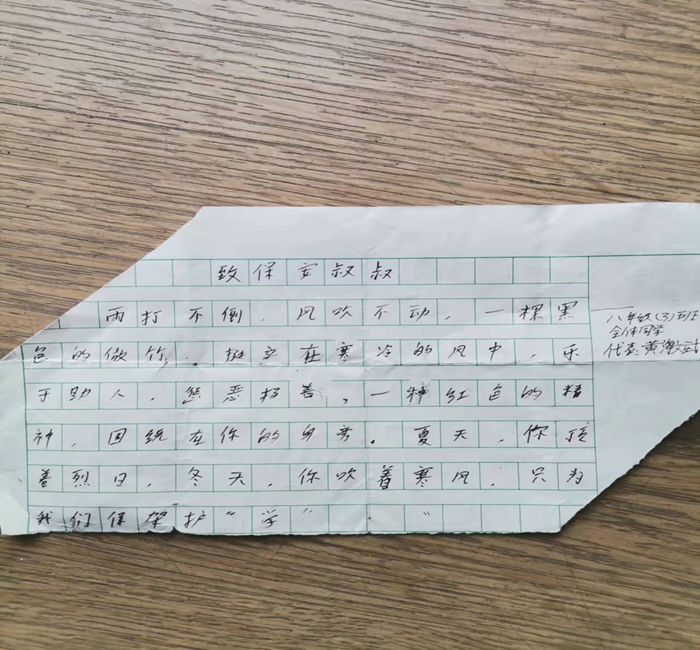 致保安叔叔
雨打不倒，风吹不动，一棵黑
色的微竹，挺立在寒冷的风中，乐
于助人，惩恶扬善，一种红色的精
神，围绕在你的身旁。夏天，你顶
着烈日，冬天，你吹着寒风，只为
我们保架护“学”
八年级(3)班
全体同学
代表：黄